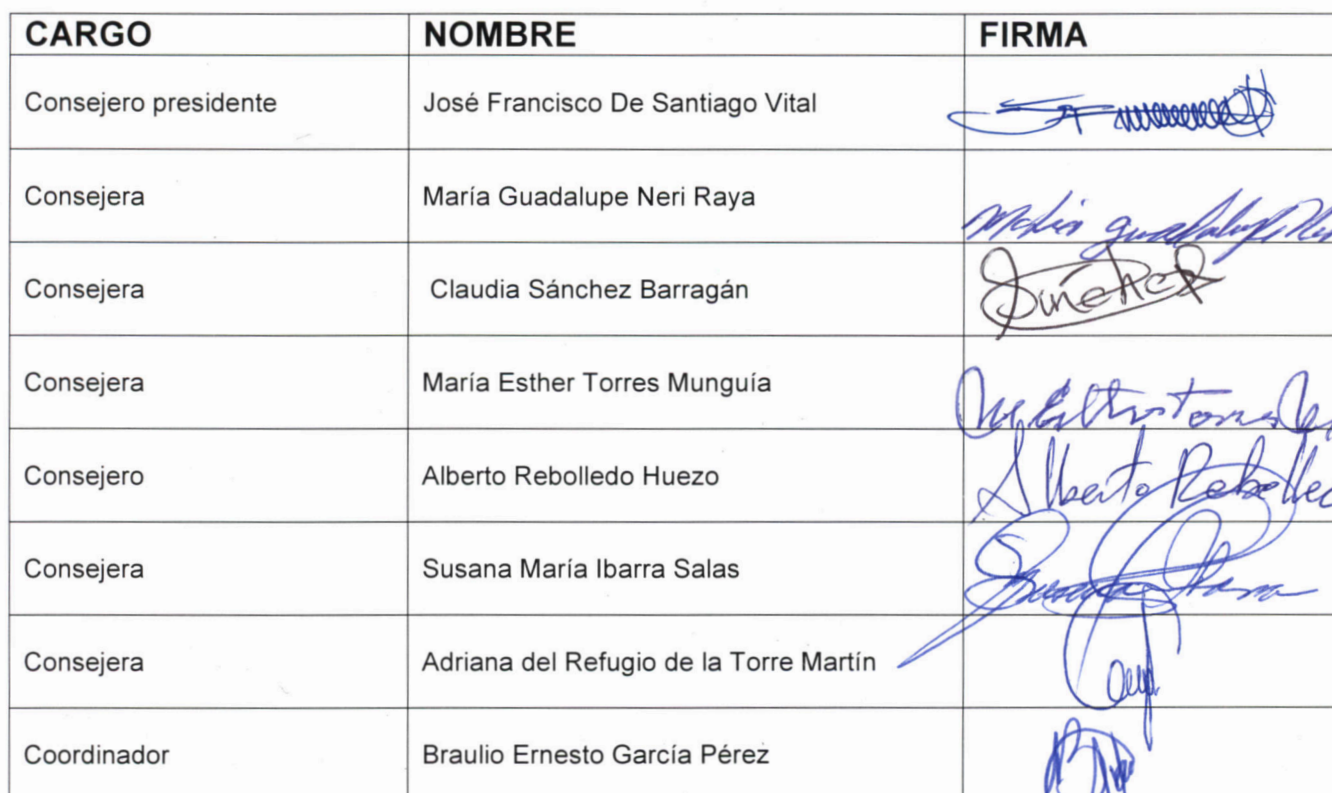 CARGO NOMBRE FIRMA
Consejero presidente José Francisco De Santiago Vital
Consejera María Guadalupe Neri Raya
Consejera Claudia Sánchez Barragán
Sánchez
Consejera María Esther Torres Munguía
Ma. Esther Torres
Consejero Alberto Rebolledo Huezo Alberto Rebolledo
Consejera Susana María Ibarra Salas
Consejera Adriana del Refugio de la Torre Martín
Coordinador Braulio Ernesto García Pérez